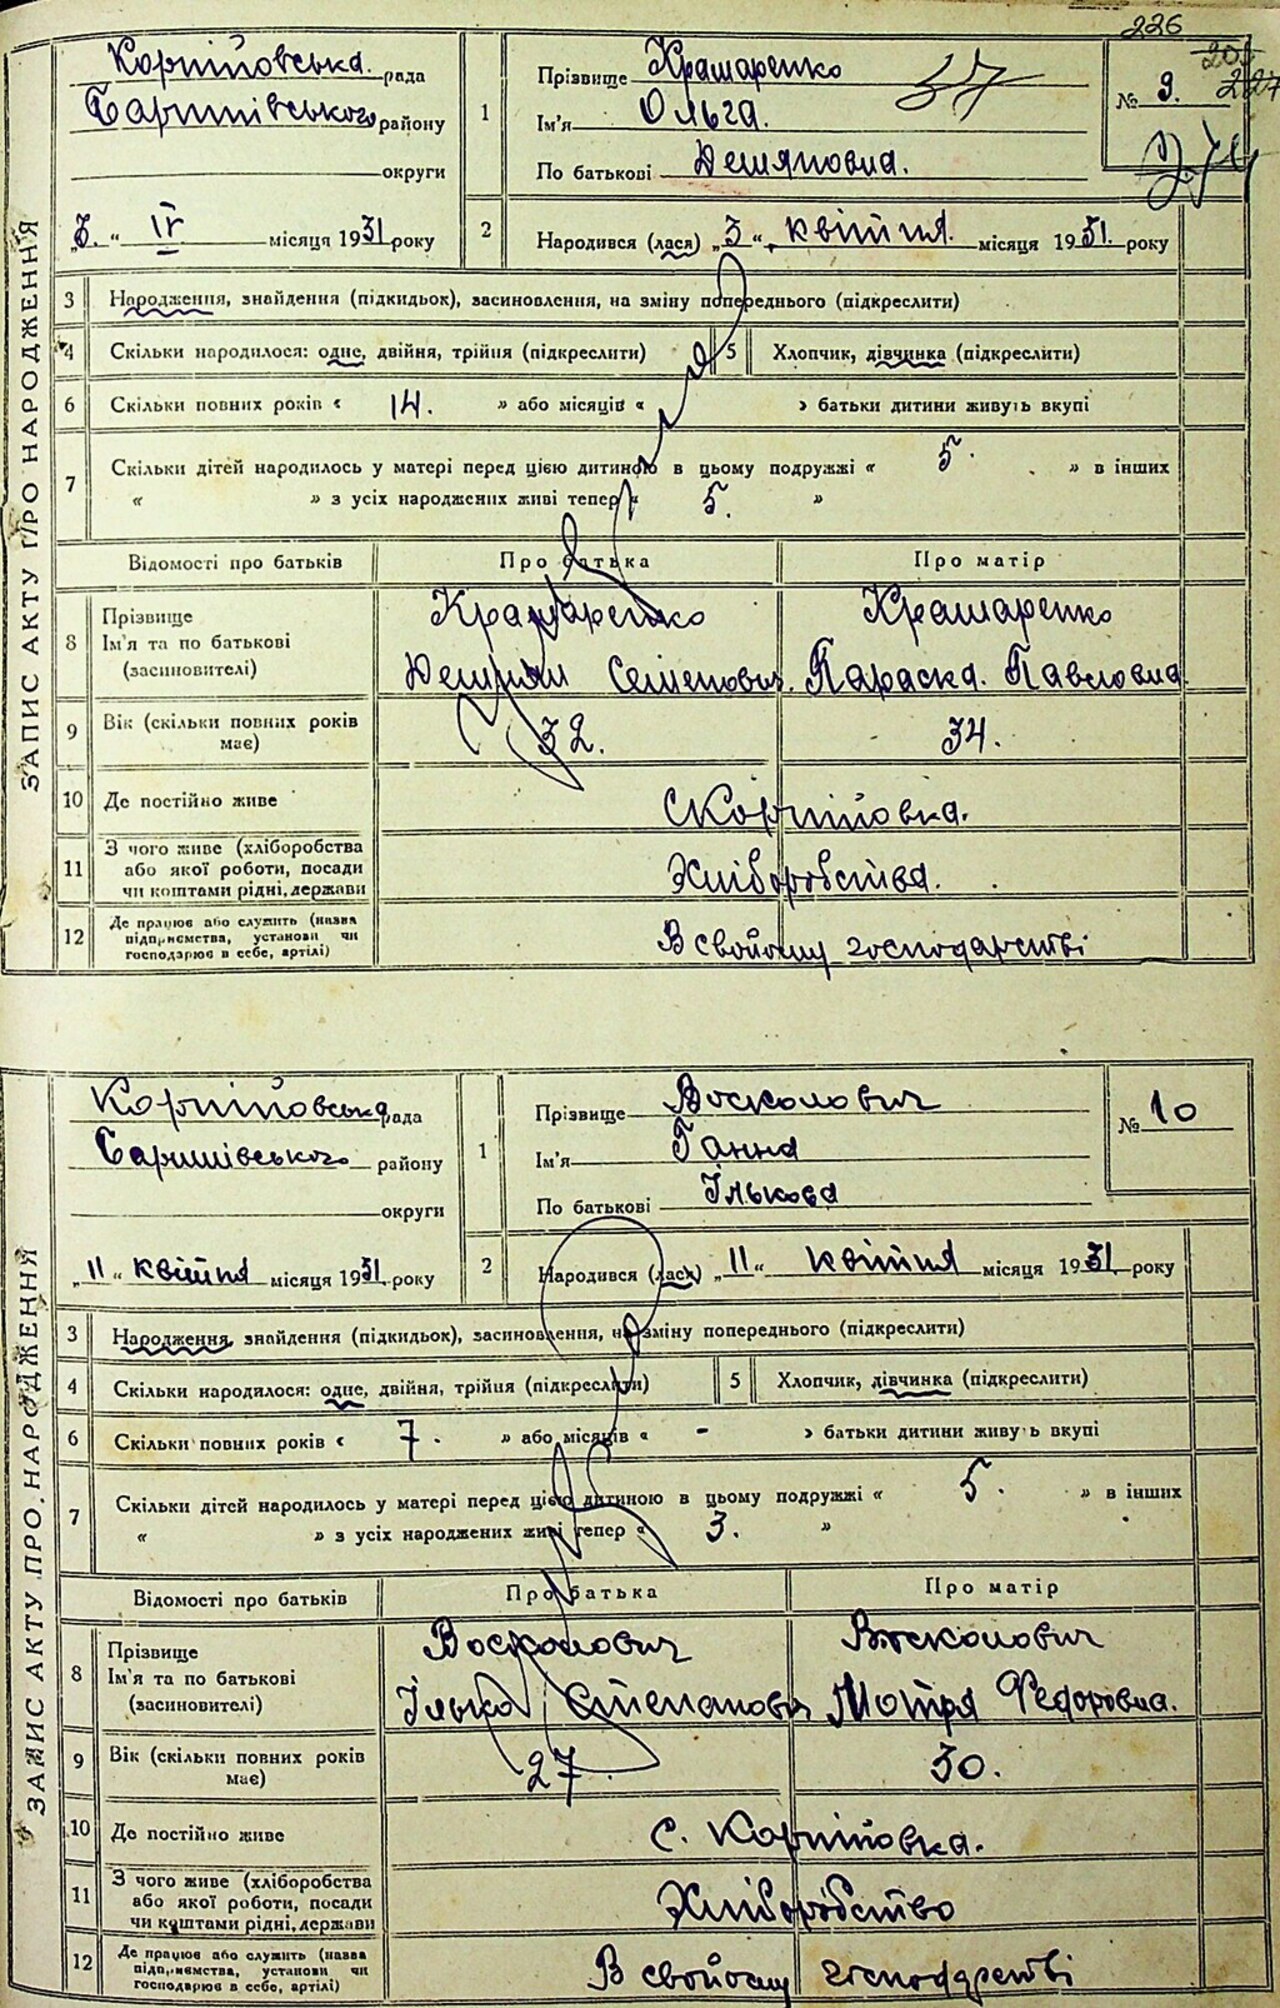 226
ЗАПИС АКТУ ПРО НАРОДЖЕННЯ
Корніївська рада
Баришівського району
округи
„3.“ IV місяця 1931 року
1
Прізвище Крашаренко 37
Ім'я Ольга.
По батькові Демяновна.
№ 9. 227
274
2
Народився (лася) „3“ квітня. місяця 1931. року
3 Народження, знайдення (підкидьок), засиновлення, на зміну попереднього (підкреслити)
4 Скільки народилося: одне, двійня, трійня (підкреслити) 5 Хлопчик, дівчинка (підкреслити)
6 Скільки повних років « 14. » або місяців « » батьки дитини живуть вкупі
7 Скільки дітей народилось у матері перед цією дитиною в цьому подружжі « 5. » в інших
« » з усіх народжених живі тепер « 5. »
Відомості про батьків Про батька Про матір
8 Прізвище Ім'я та по батькові (засиновителі)
Крашаренко Крашаренко
Демян Семенович. Параска. Павловна.
9 Вік (скільки повних років має) 32. 34.
10 Де постійно живе С Корніївка.
11 З чого живе (хліборобства або якої роботи, посади чи коштами рідні, держави Хліборобства.
12 Де працює або служить (назва підприємства, установи чи господарює в себе, артілі) В свойому господарстві
ЗАПИС АКТУ ПРО НАРОДЖЕННЯ
Корніївська рада
Баришівського району
округи
„11“ квітня місяця 1931 року
1
Прізвище Восколович
Ім'я Ганна
По батькові Ількова
№ 10
2
Народився (лася) „11“ квітня місяця 1931. року
3 Народження, знайдення (підкидьок), засиновлення, на зміну попереднього (підкреслити)
4 Скільки народилося: одне, двійня, трійня (підкреслити) 5 Хлопчик, дівчинка (підкреслити)
6 Скільки повних років « 7. » або місяців « - » батьки дитини живуть вкупі
7 Скільки дітей народилось у матері перед цією дитиною в цьому подружжі « 5. » в інших
« » з усіх народжених живі тепер « 3. »
Відомості про батьків Про батька Про матір
8 Прізвище Ім'я та по батькові (засиновителі)
Восколович Восколович
Ілько Степанович Мотря Федоровна.
9 Вік (скільки повних років має) 27. 30.
10 Де постійно живе с. Корніївка.
11 З чого живе (хліборобства або якої роботи, посади чи коштами рідні, держави Хліборобство
12 Де працює або служить (назва підприємства, установи чи господарює в себе, артілі) В свойому господарстві